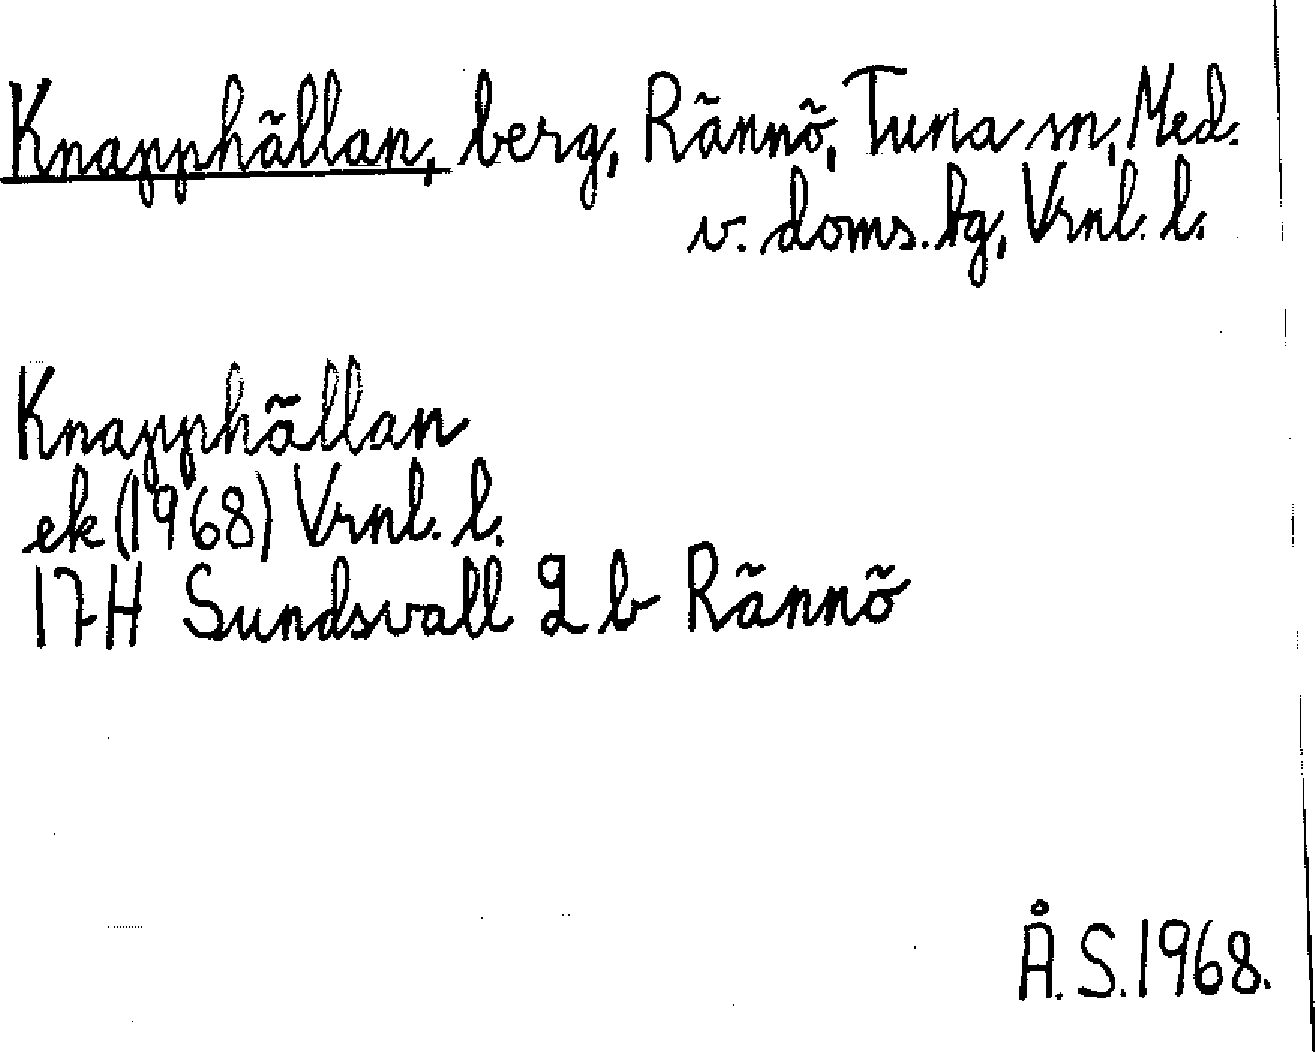 Knapphällan, berg, Rännö, Tuna sn, Med.
v. doms.bg, Vrnl. l.
Knapphällan
ek (1968) Vrnl. l.
17H Sundsvall 2 b Rännö
Å.S.1968.